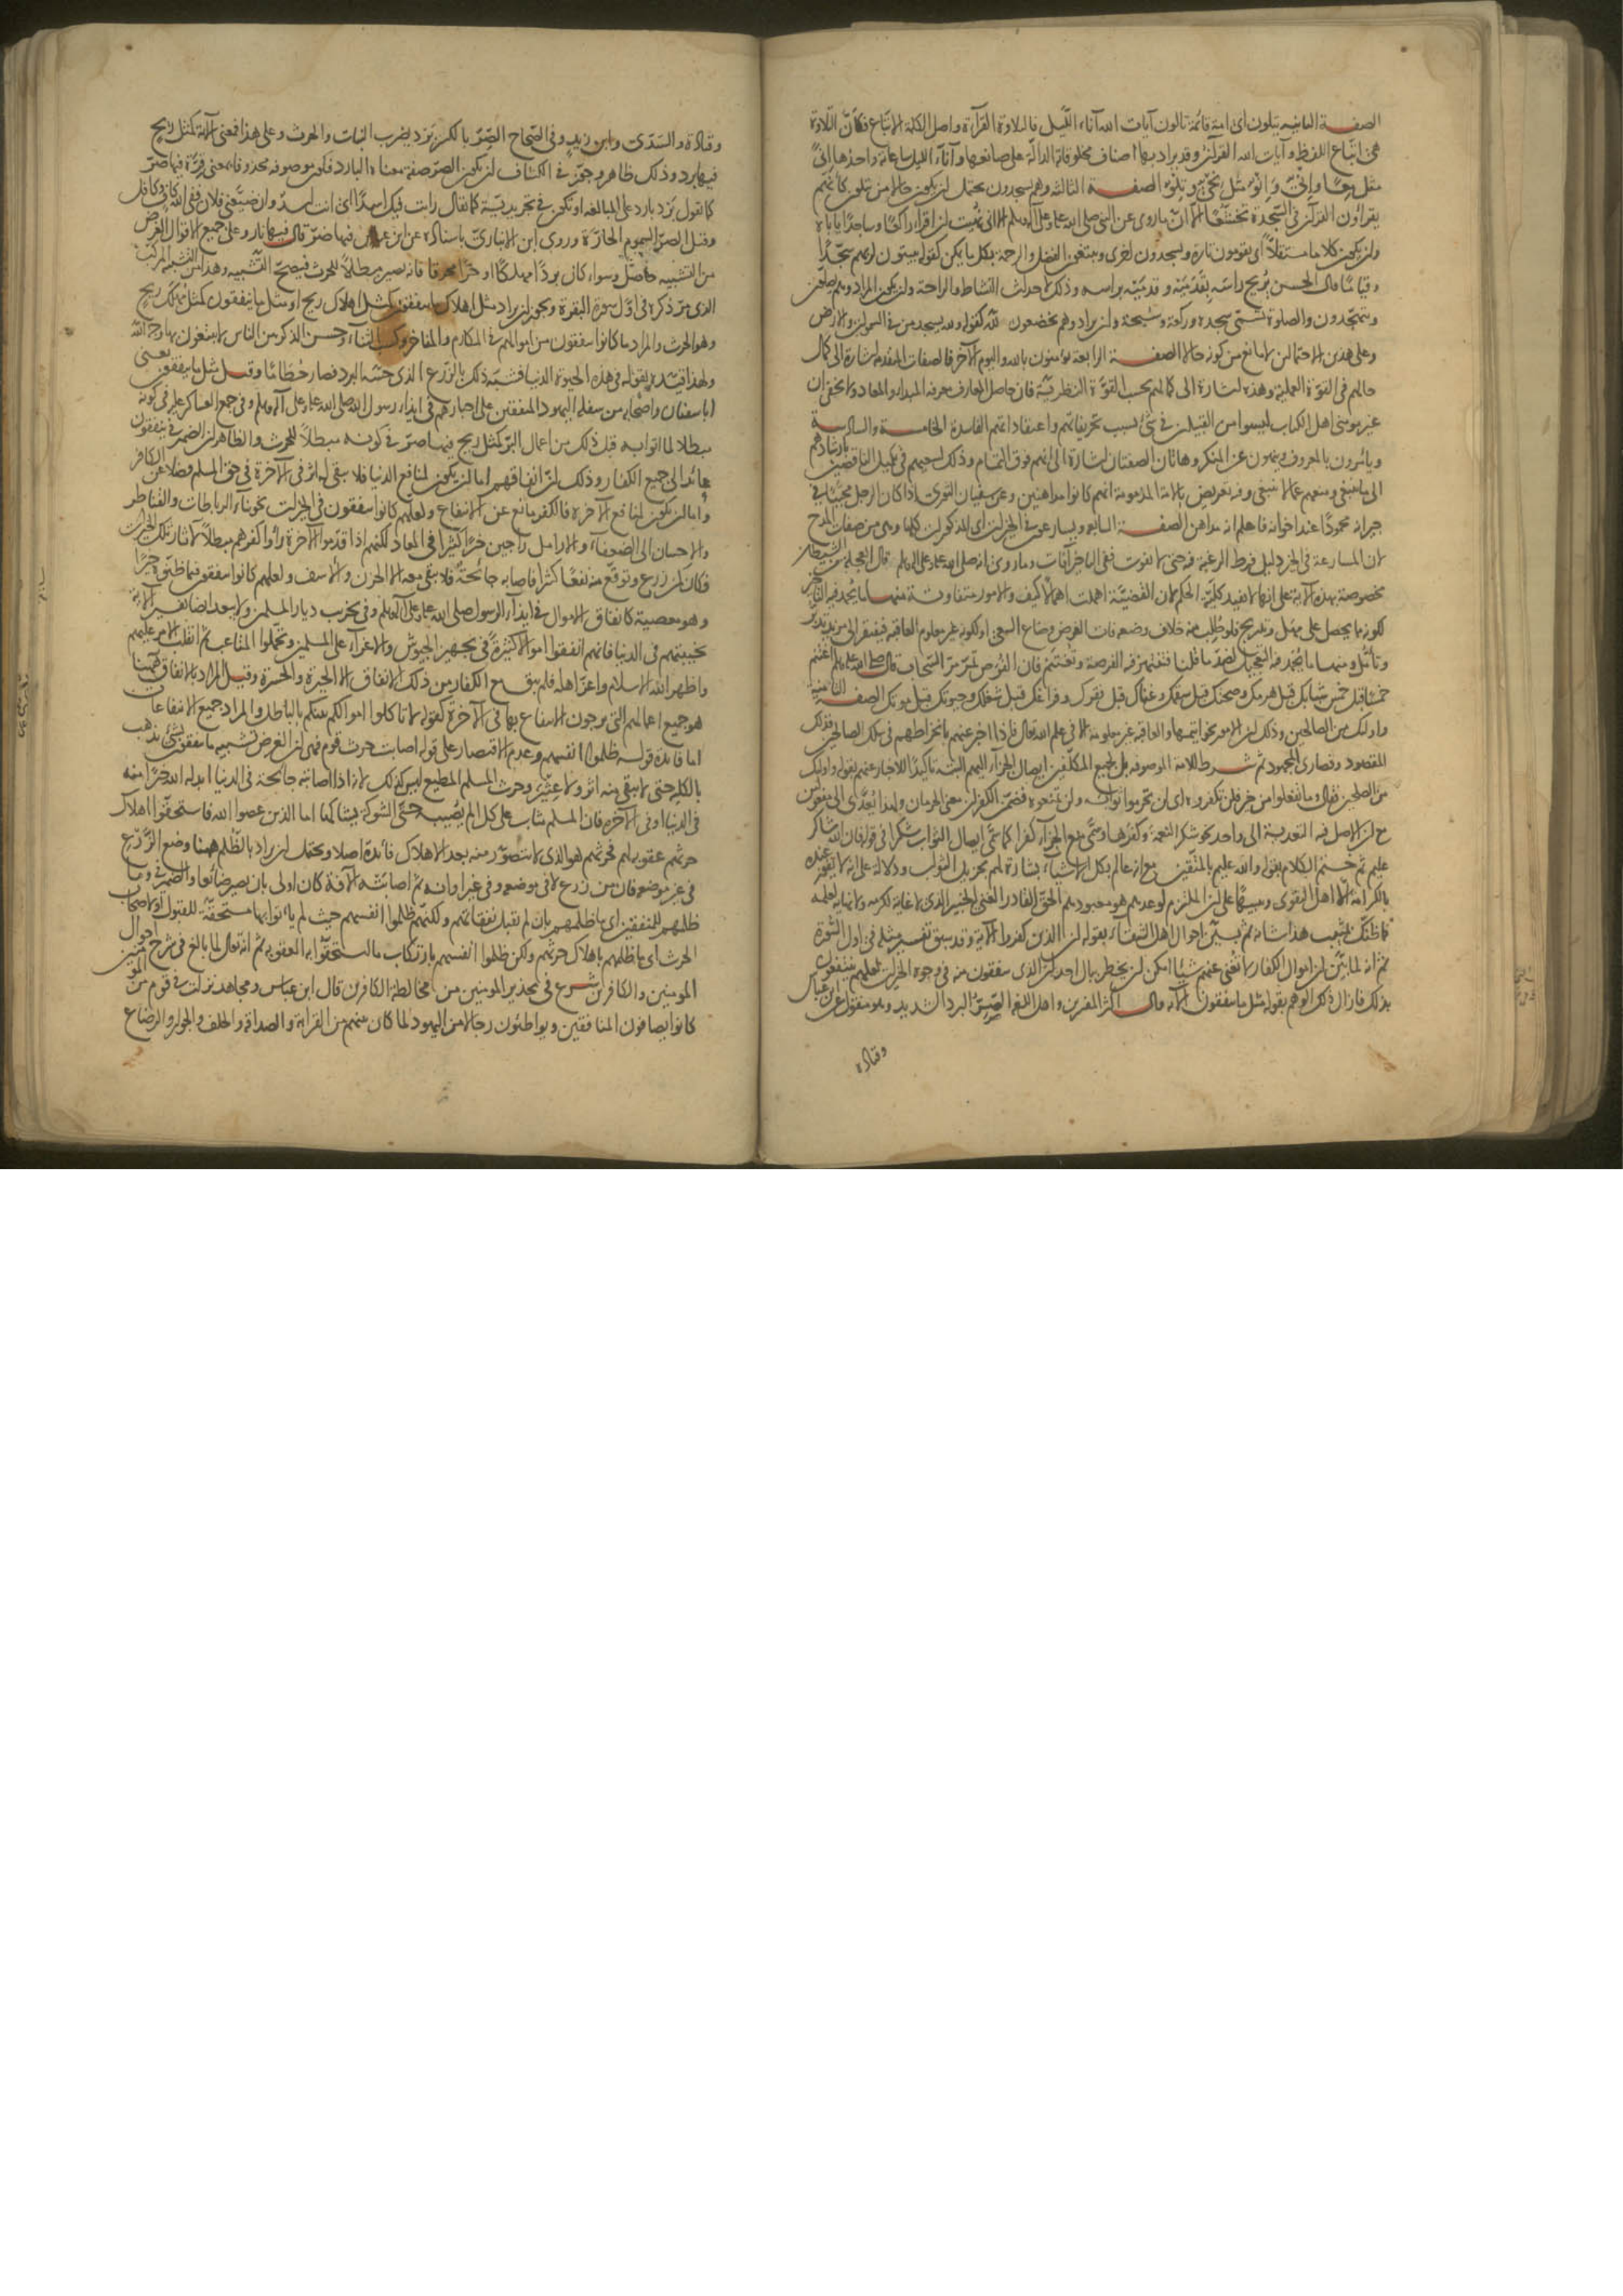 الصفة الثانية يتلون اى امة قائمة تالون آيات الله آناء الليل فالتلاوة القرآءة واصل الكلمة الاتباع فكان التلاوة
هى اتباع اللفظ وآيات الله القرآن وقد يراد بها اصناف مخلوقاته الدالة على صانعها وآناء الليل ساعاته واحدها انىً
مثل معًا وانى وانو مثل نحى وتلو الصفة الثالثة وهم يسجدون يحتمل ان يكون حالا من يتلون كانهم
يقراون القرآن فى السجدة تخشعًا الا ان ما روى عن النبى صلى الله عليه وعلى آله وسلم الا انى نهيت ان اقرا راكعًا وساجدًا ياباه
وان يكون كلاما مستقلاً اى يقومون تارة ويسجدون اخرى ويبتغون الفضل والرحمة بكل ما يمكن كقوله يبيتون لربهم سجّدًا
وقيامًا قال الحسن يريح راسه بقدميه وقدميه براسه وذلك لاحداث النشاط والراحة وان يكون المراد وهم يصلون
ويتهجدون والصلوة تسمى سجدة وركعة وسبحة وان يراد وهم يخضعون لله كقوله ولله يسجد من فى السموات والارض
وعلى هذين الاحتمالين لا مانع من كونه حالا الصفة الرابعة يؤمنون بالله واليوم الآخر فالصفات المتقدمة اشارة الى كمال
حالهم فى القوة العملية وهذه اشارة الى كمالهم بحسب القوة النظرية فان حاصل المعارف معرفة المبداء والمعاد ولا يخفى ان
غير مومنى اهل الكتاب ليسوا من القبيلين فى شئ بسبب تحريفاتهم واعتقاداتهم الفاسدة الخامسة والسادسة
ويامرون بالمعروف وينهون عن المنكر وهاتان الصفتان اشارة الى انهم فوق التمام وذلك لسعيهم فى تكميل الناقصين بارشادهم
الى ما ينبغى ومنعهم عما لا ينبغى وفيه تعريض بالامة المذمومة انهم كانوا مداهنين وعن سفيان الثورى اذا كان الرجل محببًا فى
جيرانه محمودًا عند اخوانه فاعلم انه مداهن الصفة السابعة ويسارعون فى الخيرات اى المذكورات كلها وهى من صفات المدح
لان المسارعة فى الخير دليل فرط الرغبة فيه حتى لا تفوت ففى التاخير آفات وما روى انه صلى الله عليه وعلى آله وسلم قال العجلة من الشيطان
مخصوصة بهذه الآية على انها لا تفيد كلية الحكم لان القضية اهملت اهمالاً كيف والامور متفاوتة منها ما يحمد فيه التاخير
لكونه مما يحصل على مهل وتدريج فلو طلب منه خلاف وضعه فات الغرض وضاع السعى او لكونه غير معلوم العاقبة فيفتقر الى مزيد تدبر
وتأمّل ومنها ما يحمد فيه التعجيل لضد ما قلنا فتنتهز فيه الفرصة وتغتنم فان الفرص تمر مر السحاب قال صلى الله عليه وسلم اغتنم
خمسًا قبل خمس شبابك قبل هرمك وصحتك قبل سقمك وغناك قبل فقرك وفراغك قبل شغلك وحيوتك قبل موتك الصفة الثامنة
واولئك من الصالحين وذلك ان الامور بخواتيمها والعاقبة غير معلومة الا فى علم الله تعالى فاذا اخبر عنهم بانخراطهم فى سلك الصالحين فذلك
المقصود وقصارى المجهود ثم شرط للامة الموصوفة بل لجميع المكلفين ايصال الجزاء اليهم البتة تاكيدًا للاخبار عنهم بقوله واولئك
من الصالحين فقال وما تفعلوا من خير فلن تكفروه اى لن تحرموا ثوابه ولن تمنعوه فضمّن الكفران معنى الحرمان ولهذا تعدّى الى مفعولين
مع ان الاصل فيه التعدية الى واحد نحو شكر النعمة وكفرها وسمى منع الجزاء كفرا كما سمى ايصال الثواب شكرا فى قوله فان الله شاكر
عليم ثم ختم الكلام بقوله والله عليم بالمتقين مع انه عالم بكل الاشياء بشارة لهم بجزيل الثواب ودلالة على انه لا يفوز عنده
بالكرامة الا اهل التقوى وتنبيهًا على ان الملتزم لوعدهم هو معبودهم الحق القادر الغنى الخبير الذى لا غاية لكرمه ولا نهاية لعلمه
فما ظنك بمن هذا شانه ثم بيّن احوال اهل الشقاء بقوله ان الذين كفروا الآية وقد سبق تفسير مثله فى اول السورة
ثم انه لما بيّن ان اموال الكفار لا تغنى عنهم شيئا امكن ان يخطر ببال احد ان الذى ينفقون منه فى وجوه الخيرات لعلهم ينتفعون
بذلك فازال ذلك الوهم بقوله مثل ما ينفقون الآية قال اكثر المفسرين واهل اللغة الصرّ البرد الشديد وهو منقول عن ابن عباس
وقتادة
وقتادة والسدّى وابن زيد وفى الصحاح الصرّ بالكسر برد يضرب النبات والحرث وعلى هذا فمعنى الآية كمثل ريح
فيها برد وذلك ظاهر وجوّز فى الكشاف ان يكون الصر صفة معناه البارد فيكون موصوفه محذوفا بمعنى قرة فيها صرّ
كما تقول برد بارد على المبالغة او تكون فى تجريدية كما يقال رايت فيك اسدًا اى انت اسد وان ضيّعنى فلان ففى الله كاف وكافل
وقيل الصر السموم الحارّة وروى ابن الانبارى باسناده عن ابن عباس فيها صرّ قال فيها نار وعلى جميع الاقوال الغرض
من التشبيه حاصل وسواء كان بردًا مهلكًا او حرًّا محرقا فانه يصير مبطلاً للحرث فيصحّ التشبيه وهذا من التشبيه المركب
الذى مر ذكره فى اول سورة البقرة ويجوز ان يراد مثل اهلاك ما ينفقون كمثل اهلاك ريح او مثل ما ينفقون كمثل مهلك ريح
وهو الحرث والمراد ما كانوا ينفقون من اموالهم فى المكارم والمفاخر وكسب الثناء وحسن الذكر من الناس لا يبتغون بها وجه الله
ولهذا قيّد بقوله فى هذه الحيوة الدنيا فشبّه ذلك بالزرع الذى حسّه البرد فصار حطامًا وقيل مثل ما ينفقون يعنى
ابا سفيان واصحابه من سفلة اليهود المنفقين على احبارهم فى ايذاء رسول الله صلى الله عليه وعلى آله وسلم وفى جمع العساكر عليه فى كونه
مبطلا لما اتوا به قبل ذلك من اعمال البر كمثل ريح فيها صرّ فى كونه مبطلاً للحرث والظاهر ان الضمير فى ينفقون
عائد الى جميع الكفار وذلك لان انفاقهم اما ان يكون لمنافع الدنيا فلا يبقى له اثر فى الآخرة فى حق المسلم فضلا عن الكافر
واما ان يكون لمنافع الآخرة فالكفر مانع عن الانتفاع ولعلهم كانوا ينفقون فى الخيرات نحو بناء الرباطات والقناطر
والاحسان الى الضعفاء والارامل راجين خيرًا كثيرًا فى المعاد لكنهم اذا قدموا الآخرة رأوا كفرهم مبطلاً لآثار تلك الخيرات
فكان كمن زرع وتوقع منه نفعًا كثيرا فاصابه جائحة فلا يبقى معه الا الحزن والاسف ولعلهم كانوا ينفقون فيما ظنوه خيرًا
وهو معصية كانفاق الاموال فى ايذاء الرسول صلى الله عليه وعلى آله وسلم وفى تخريب ديار المسلمين ولا يبعد ايضا تفسير الآية
بخيبتهم فى الدنيا فانهم انفقوا اموالاً كثيرة فى تجهيز الجيوش والاغراء على المسلمين وتحمّلوا المتاعب ثم انقلب الامر عليهم
واظهر الله الاسلام واعزّ اهله فلم يبق مع الكفار من ذلك الانفاق الا الحيرة والحسرة وقيل المراد بالانفاق ههنا
هو جميع اعمالهم التى يرجون الانتفاع بها فى الآخرة كقوله لا تاكلوا اموالكم بينكم بالباطل والمراد جميع الانتفاعات
اما فائدة قوله ظلموا انفسهم وعدم الاقتصار على قوله اصابت حرث قوم فهى ان الغرض تشبيه ما ينفقون بشئ يذهب
بالكلية حتى لا يبقى منه اثر ولا عثير وحرث المسلم المطيع ليس كذلك لانه اذا اصابته جائحة فى الدنيا ابدله الله خيرًا منه
فى الدنيا او فى الآخرة فان المسلم مثاب على كل الم يصيبه حتى الشوكة يشاكها اما الذين عصوا الله فاستحقوا اهلاك
حرثهم عقوبة لهم فحرثهم هو الذى لا يتصوّر منه بعد الاهلاك فائدة اصلا ويحتمل ان يراد بالظلم ههنا وضع الزرع
فى غير موضعه فان من زرع لا فى موضعه وفى غير اوانه ثم اصابته الآفة كان اولى بان يصير ضائعا والضمير فى وما
ظلمهم للمنفقين اى ما ظلمهم بان لم يقبل نفقاتهم ولكنهم ظلموا انفسهم حيث لم ياتوا بها مستحقة للقبول او لاصحاب
الحرث اى ما ظلمهم باهلاك حرثهم ولكن ظلموا انفسهم بارتكاب ما استحقوا به العقوبة ثم انه تعالى لما بالغ فى شرح احوال
المومنين والكافرين شرع فى تحذير المومنين من مخالطة الكافرين قال ابن عباس ومجاهد نزلت فى قوم من المومنين
كانوا يصافون المنافقين ويواطئون رجالا من اليهود لما كان بينهم من القرابة والصداقة والحلف والجوار والرضاع